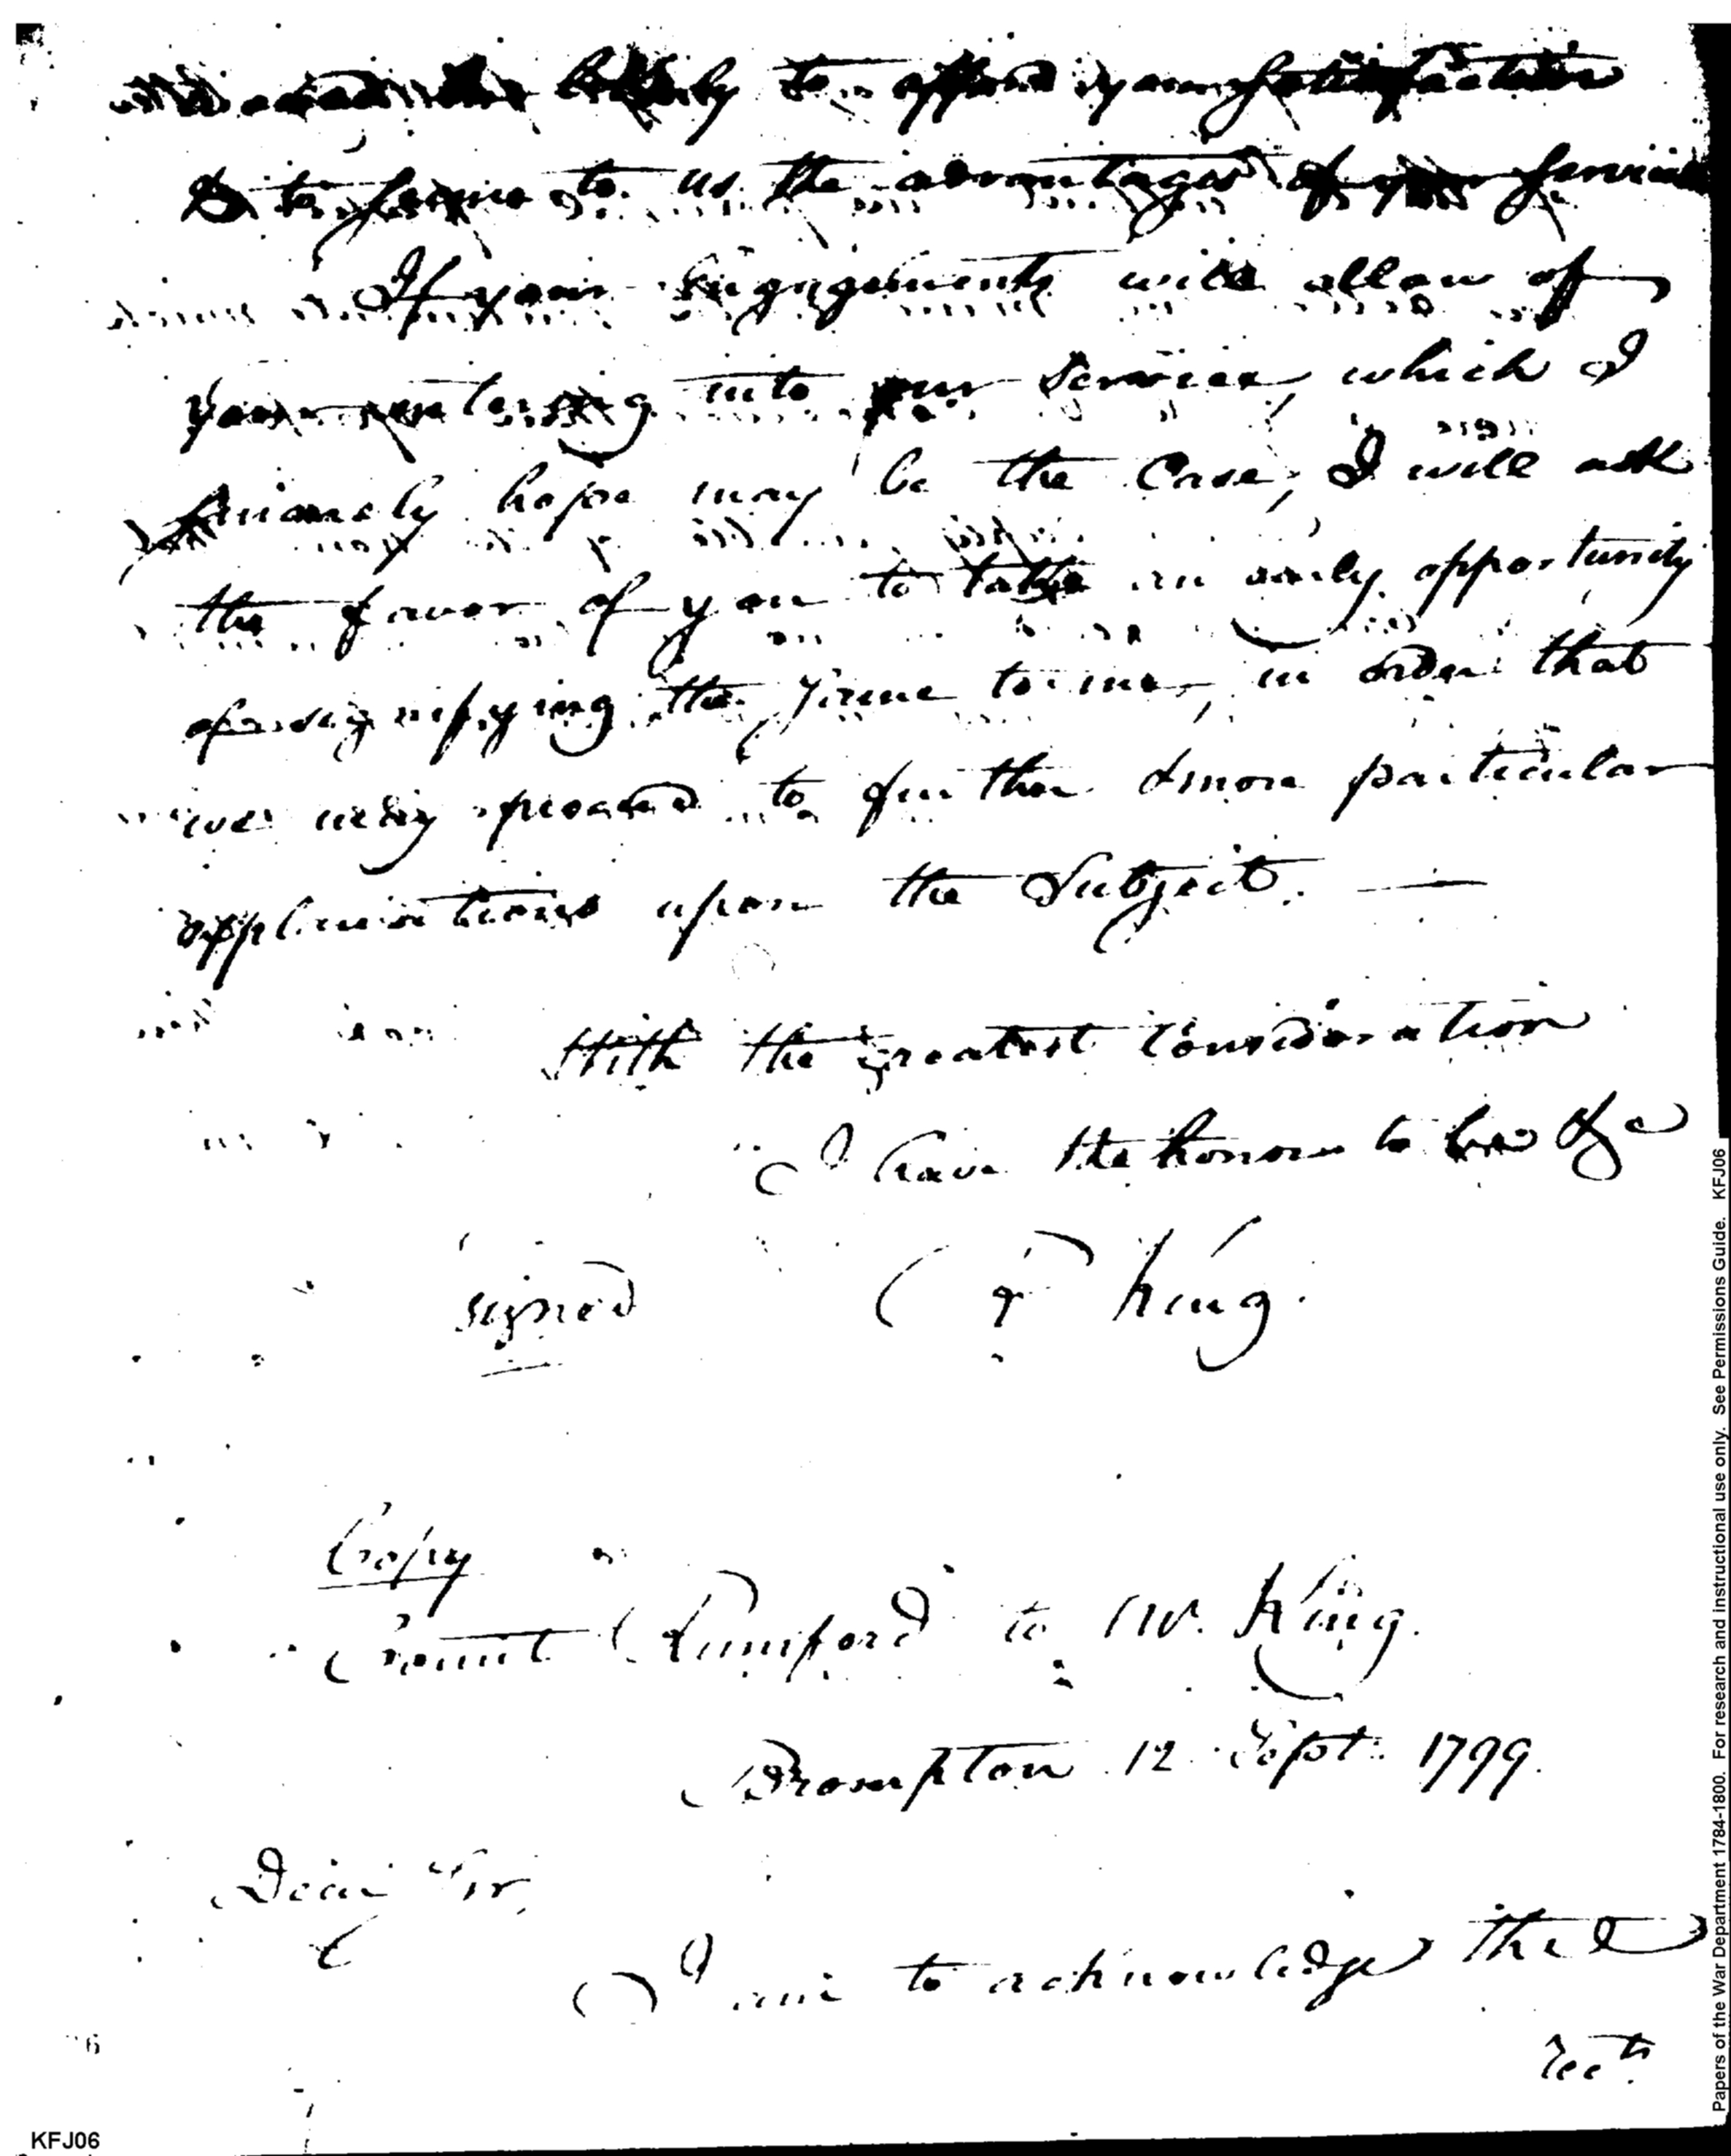 likely to afford you satisfaction
& to secure to us the advantages of your service
If your Engagements will allow of
your entering into our Service, which I
sincerely hope may be the Case, I will ask
the favor of you to take an early opportunity
of signifying the same to me, in order that
we may proceed to further & more particular
explanations upon the Subject. —
With the greatest Consideration
I have the honor to be &c
signed R King.
Copy
Count Rumford to Mr. King.
Brompton 12 Sept. 1799.
Dear Sir,
I am to acknowledge the
KFJ06
Papers of the War Department 1784-1800. For research and instructional use only. See Permissions Guide. KFJ06